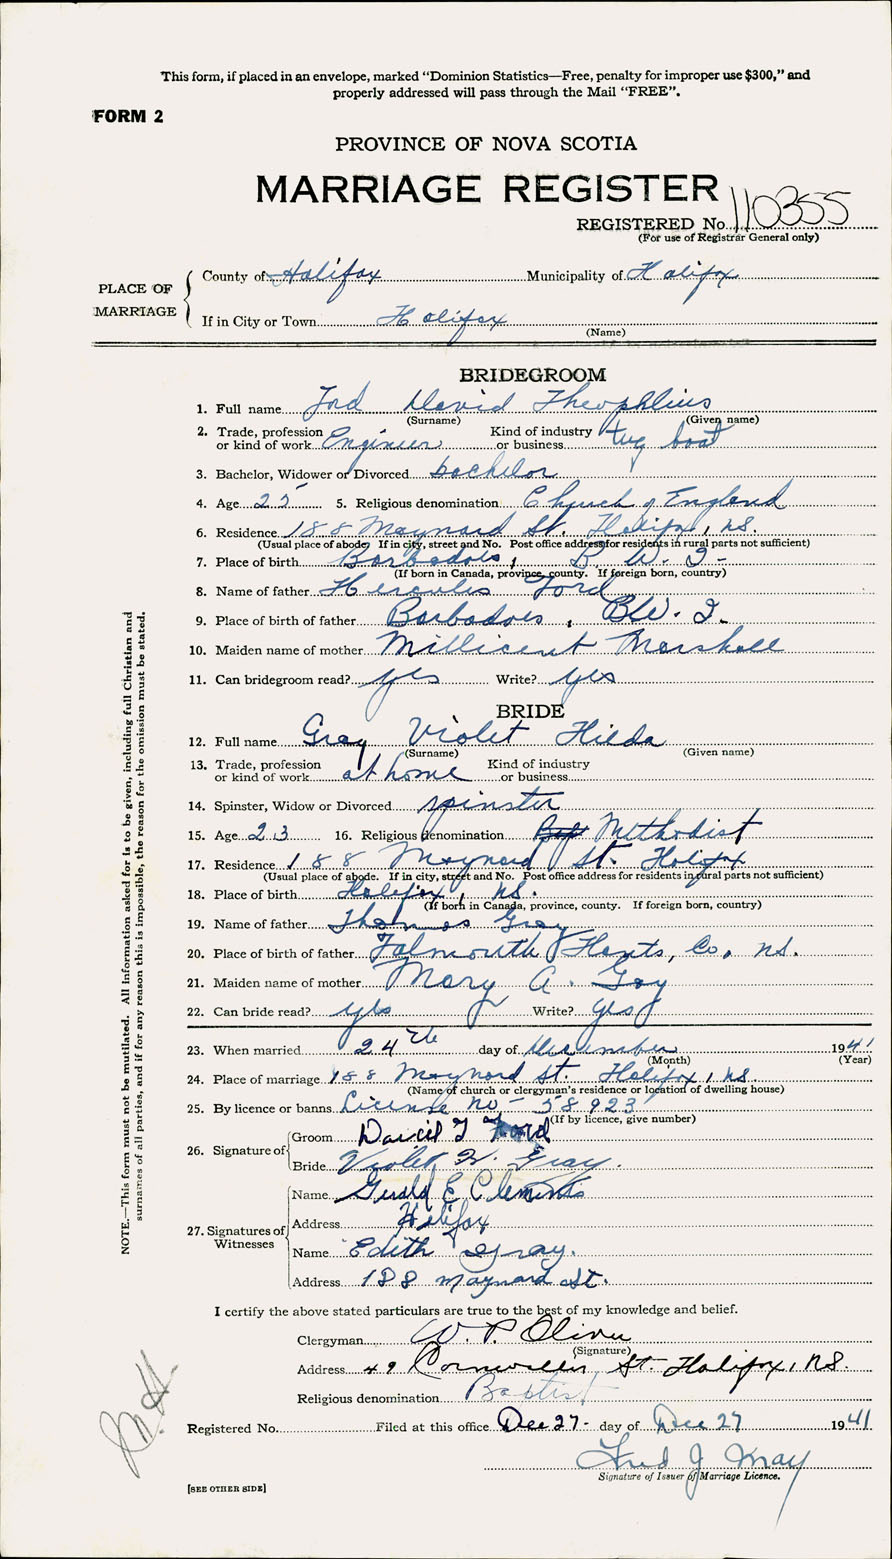 This form, if placed in an envelope, marked “Dominion Statistics—Free, penalty for improper use $300,” and
properly addressed will pass through the Mail “FREE”.
FORM 2
PROVINCE OF NOVA SCOTIA
MARRIAGE REGISTER
REGISTERED No. 110355
(For use of Registrar General only)
PLACE OF MARRIAGE
County of Halifax Municipality of Halifax
If in City or Town Halifax
(Name)
BRIDEGROOM
1. Full name Ford David Theophlius
(Surname) (Given name)
2. Trade, profession or kind of work Engineer Kind of industry or business tug boat
3. Bachelor, Widower or Divorced bachelor
4. Age 25 5. Religious denomination Church of England
6. Residence 188 Maynard St. Halifax, N.S.
(Usual place of abode. If in city, street and No. Post office address for residents in rural parts not sufficient)
7. Place of birth Barbados, B. W. I.
(If born in Canada, province, county. If foreign born, country)
8. Name of father Hercules Ford
9. Place of birth of father Barbados, B.W.I.
10. Maiden name of mother Millicent Marshall
11. Can bridegroom read? yes Write? yes
BRIDE
12. Full name Gray Violet Hilda
(Surname) (Given name)
13. Trade, profession or kind of work at home Kind of industry or business
14. Spinster, Widow or Divorced spinster
15. Age 23 16. Religious denomination Methodist
17. Residence 188 Maynard St. Halifax
(Usual place of abode. If in city, street and No. Post office address for residents in rural parts not sufficient)
18. Place of birth Halifax, N.S.
(If born in Canada, province, county. If foreign born, country)
19. Name of father Thomas Gray
20. Place of birth of father Falmouth Hants, Co. N.S.
21. Maiden name of mother Mary A. Goy
22. Can bride read? yes Write? yes
23. When married 24th day of December 1941
(Month) (Year)
24. Place of marriage 188 Maynard St. Halifax, N.S.
(Name of church or clergyman's residence or location of dwelling house)
25. By licence or banns License No - 58923
(If by licence, give number)
26. Signature of
Groom David T Ford
Bride Violet H. Gray.
27. Signatures of Witnesses
Name Gerald E Clements
Address Halifax
Name Edith Gray.
Address 188 Maynard St.
I certify the above stated particulars are true to the best of my knowledge and belief.
Clergyman W. P. Oliver
(Signature)
Address 49 Cornwallis St. Halifax, N.S.
Religious denomination Baptist
Registered No. Filed at this office Dec 27- day of Dec 27 1941
Fred J Gray
Signature of Issuer of Marriage Licence.
[SEE OTHER SIDE]
NOTE.—This form must not be mutilated. All information asked for is to be given, including full Christian and
surnames of all parties, and if for any reason this is impossible, the reason for the omission must be stated.